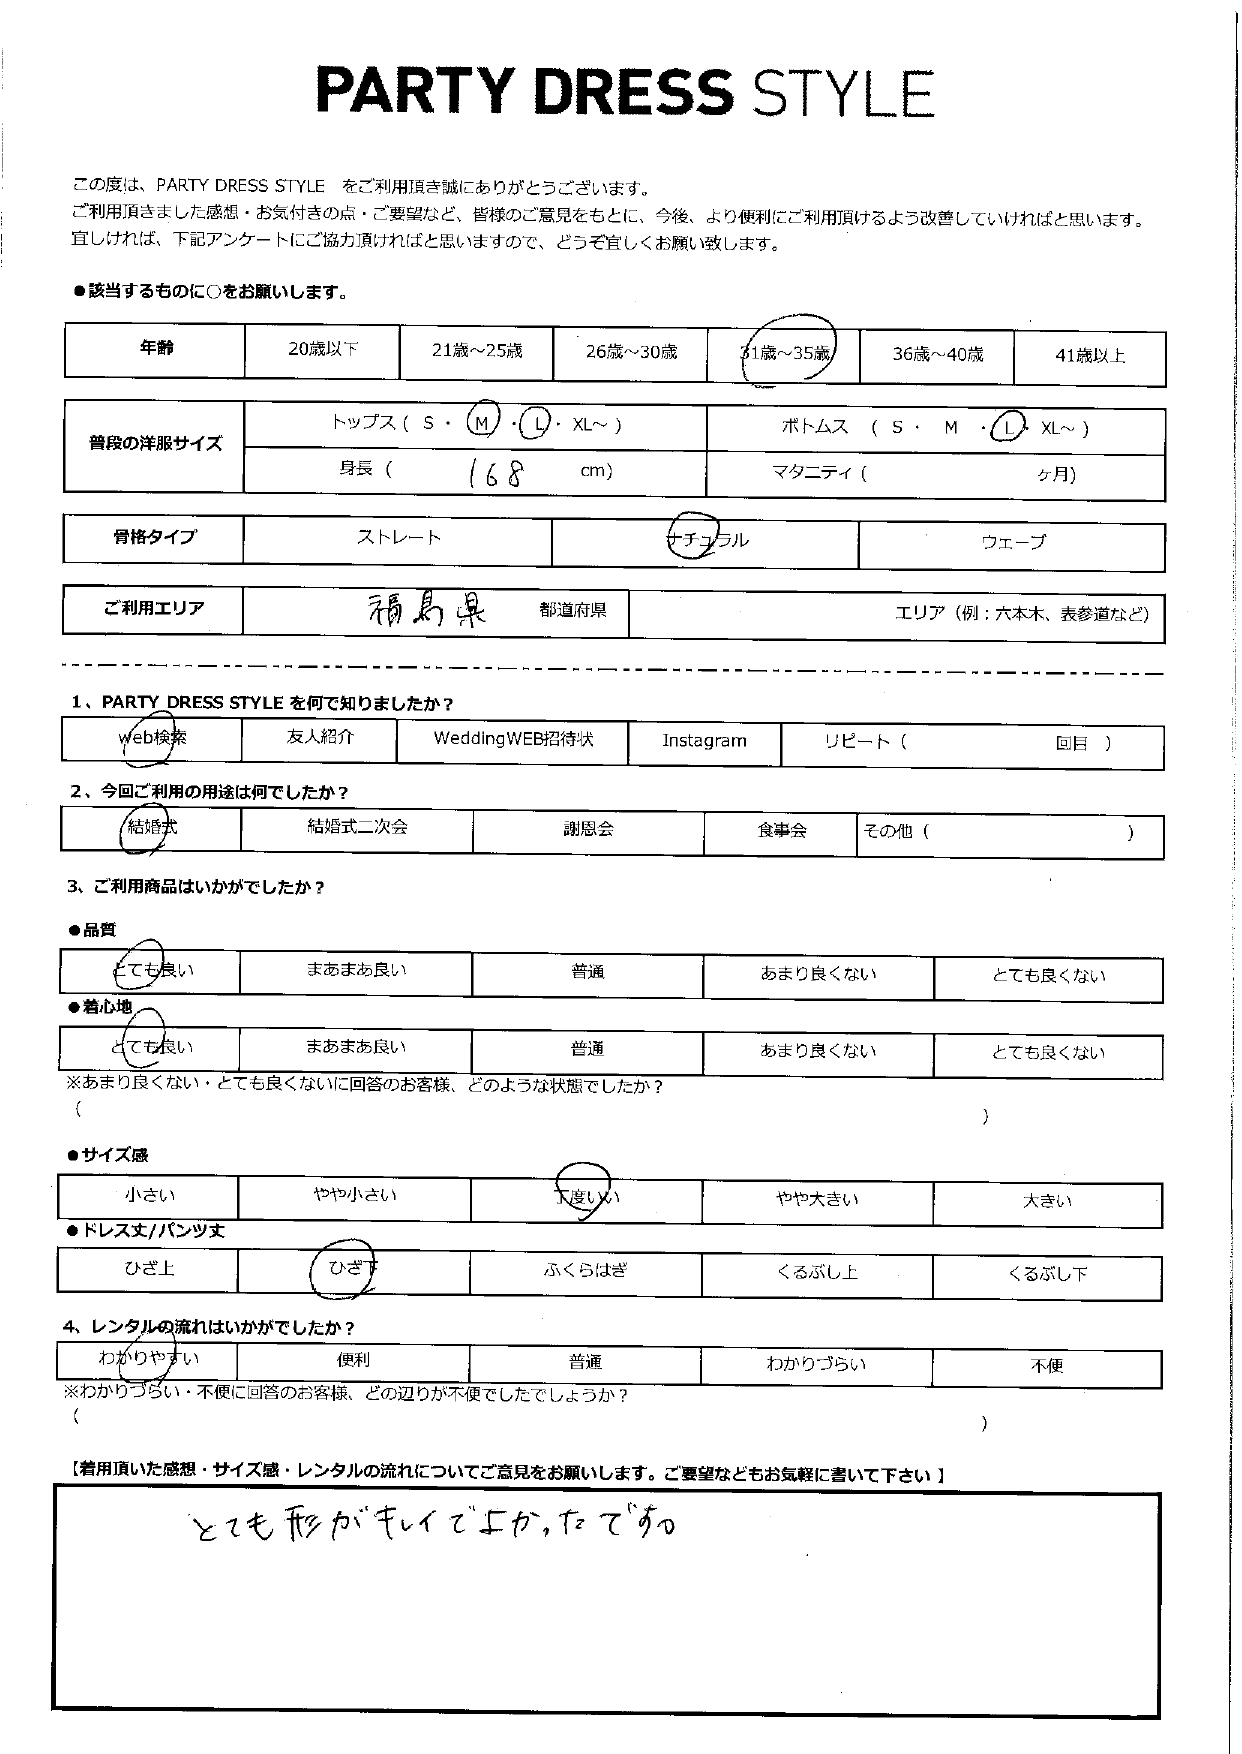 PARTY DRESS STYLE
この度は、PARTY DRESS STYLE をご利用頂き誠にありがとうございます。
ご利用頂きました感想・お気付きの点・ご要望など、皆様のご意見をもとに、今後、より便利にご利用頂けるよう改善していければと思います。
宜しければ、下記アンケートにご協力頂ければと思いますので、どうぞ宜しくお願い致します。
●該当するものに○をお願いします。
年齢 20歳以下 21歳～25歳 26歳～30歳 31歳～35歳 36歳～40歳 41歳以上
普段の洋服サイズ トップス ( S ・ M ・ L ・ XL～ ) ボトムス ( S ・ M ・ L ・ XL～ )
身長 ( 168 cm) マタニティ ( ヶ月)
骨格タイプ ストレート ナチュラル ウェーブ
ご利用エリア 福島県 都道府県 エリア（例：六本木、表参道など）
1、PARTY DRESS STYLE を何で知りましたか？
Web検索 友人紹介 WeddingWEB招待状 Instagram リピート ( 回目 )
2、今回ご利用の用途は何でしたか？
結婚式 結婚式二次会 謝恩会 食事会 その他 ( )
3、ご利用商品はいかがでしたか？
●品質
とても良い まあまあ良い 普通 あまり良くない とても良くない
●着心地
とても良い まあまあ良い 普通 あまり良くない とても良くない
※あまり良くない・とても良くないに回答のお客様、どのような状態でしたか？
( )
●サイズ感
小さい やや小さい 丁度いい やや大きい 大きい
●ドレス丈/パンツ丈
ひざ上 ひざ下 ふくらはぎ くるぶし上 くるぶし下
4、レンタルの流れはいかがでしたか？
わかりやすい 便利 普通 わかりづらい 不便
※わかりづらい・不便に回答のお客様、どの辺りが不便でしたでしょうか？
( )
【着用頂いた感想・サイズ感・レンタルの流れについてご意見をお願いします。ご要望などもお気軽に書いて下さい 】
とても形がキレイでよかったです。